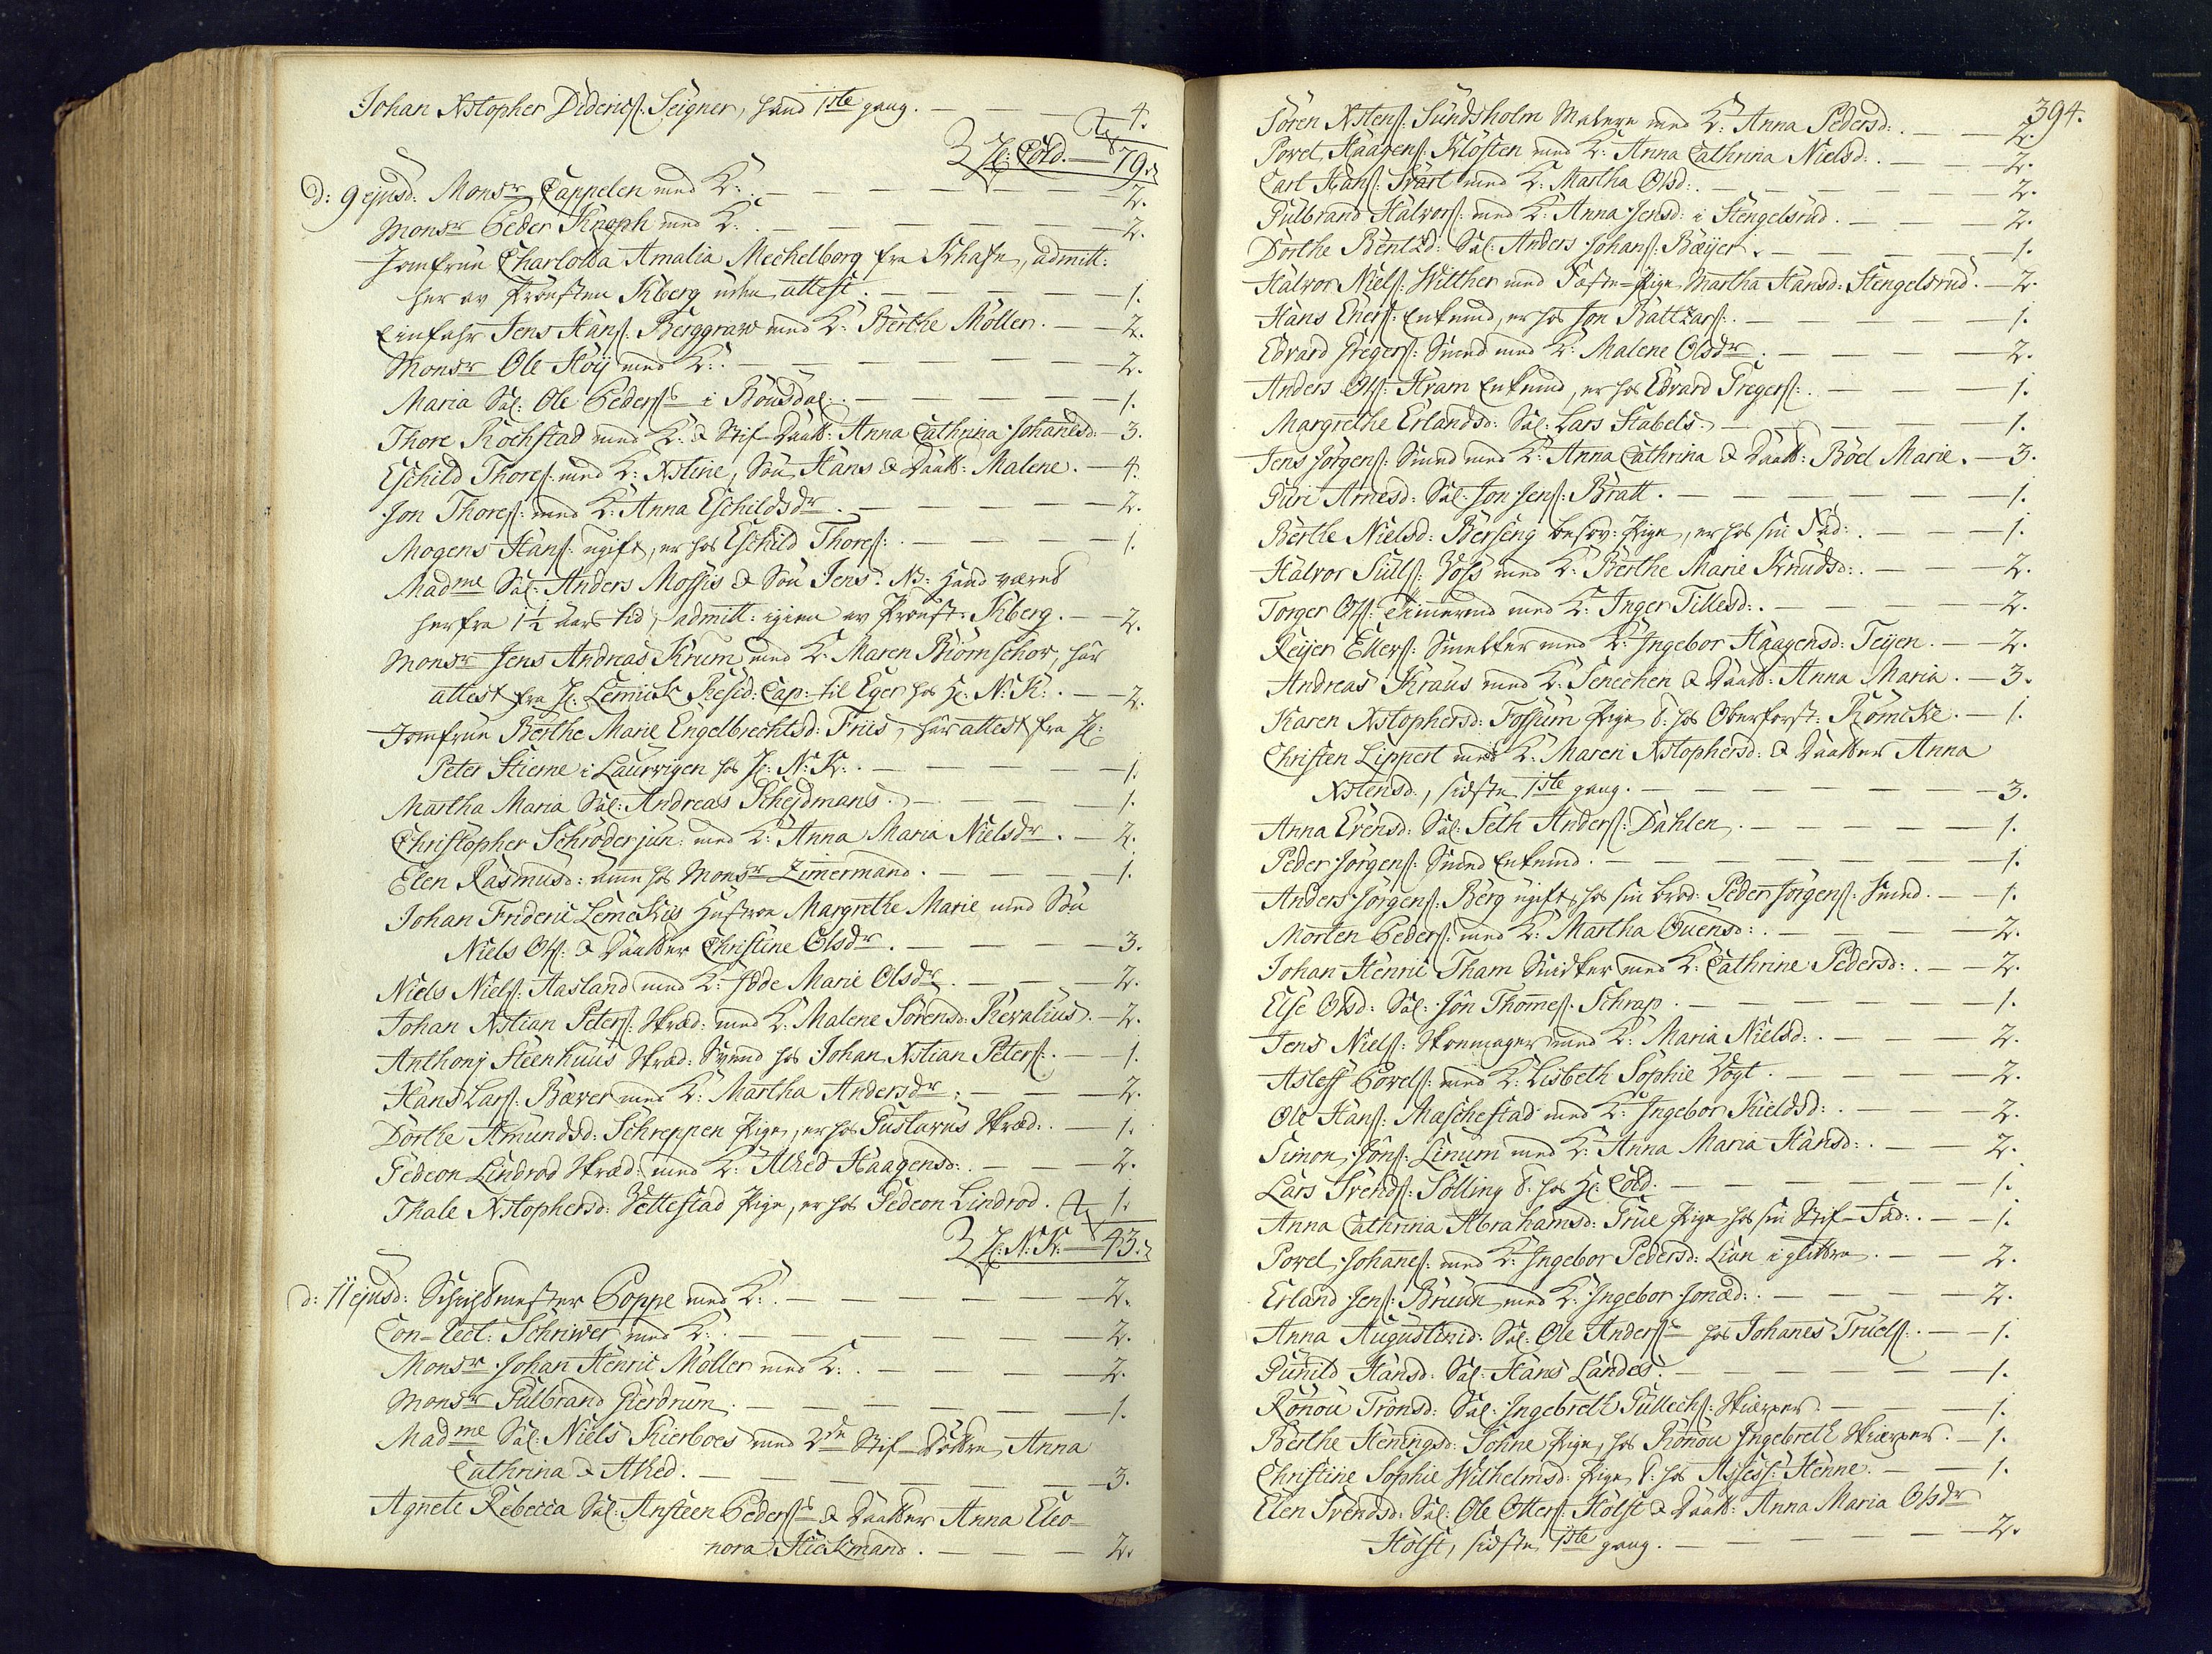 Johan Xstopher Diderichs: Seigner, hand 1ste gang. — — — 4.
H: Cold. — 79.
d: 9 ejusd: Monsr Cappelen med K: . — — — — 2.
Monsr Peder Knoph med K: . — — — — 2.
Jomfrue Charlotta Amalia Mechelborg fra Khafn, admitt:
her av Prousten Kiberg uden attest. — — — 1.
Einfahr Jens Hans: Berggraw med K: Berthe Möller. — 2.
Monsr Ole Höÿ med K: . — — — 2.
Maria Sal: Ole Peders: i Böusdal. — — — 1.
Thore Rochstad med K: & Stif-Daatt: Anna Cathrina Johanesd: — 3.
Eschild Thores: med K: Xstine, Sön Hans & Daatt: Malene. — 4.
Jon Thores: med K: Anna Eschildsdr. — — — 2.
Mogens Hans: ugift, er hos Eschild Thores: . — — — 1.
Madme Sal: Anders Mossis & Sön Jens. NB: hand været
herfra 1½ Aars tid, admitt: igien av Proust: Kiberg. — 2.
Monsr Jens Andreas Krum med K: Maren Biörnschov, har
attest fra H: Lemick Resid: Cap: til Eger hos H: N: K: . — 2.
Jomfrue Berthe Marie Engelbrechtsd: Friis, har attest fra H:
Peter Stierne i Laurvigen hos H: N: K: . — — 1.
Martha Maria Sal: Andreas Schejdmans. — — — 1.
Christopher Schröder jun: med K: Anna Maria Nielsdr. — 2.
Elen Rasmusd: Amme hos Monsr Zimermand. — — 1.
Johan Frideric Lemckis Hustroe Margrethe Marie med Sön
Niels Ols: & Daatter Christine Olsdr. — — — 3.
Niels Niels: Aasland med K: Idde Marie Olsdr. — — 2.
Johan Xstian Peters: Skræd: med K: Malene Sörensd: Revalius. — 2.
Anthonj Steenhuus Skræd: Svend hos Johan Xstian Peters: . — 1.
Hans Lars: Bæver med K: Martha Andersdr. — — 2.
Dorthe Amundsd: Schreppen Pige, er hos Gustavus Skræd: . — 1.
Gedeon Lindrod Skræd: med K: Alhed Haagensd: . — — 2.
Thale Xstophersd: Vettestad Pige, er hos Gedeon Lindrod. 1.
H: N: K: — 43.
d: 11 ejusd: Schichtmester Poppe med K: . — — — — 2.
Con-Rect: Schriwer med K: . — — — 2.
Monsr Johan Henric Möller med K: . — — 2.
Monsr Gulbrand Gierdrum. — — — 1.
Madme Sal: Niels Kierboes med 2de Stif-Döttre, Anna
Cathrina & Alhed. — — — 3.
Agnete Rebecca Sal: Ansteen Peders: & Daatter Anna Eleo-
nora Hickmand. — — — 2.
394.
Sören Xstens: Sundsholm Malere med K: Anna Pedersd: . — — 2.
Povel Haagens: Klösten med K: Anna Cathrina Nielsd: . — 2.
Carl Hans: Svart med K: Martha Olsd: . — — 2.
Gulbrand Halvors: med K: Anna Jensd: i Stengelsrud. — 2.
Dorthe Bentzd: Sal: Anders Johans: Bæÿer. — — — 1.
Halvor Niels: Witther med Fæste-Pige Martha Hansd: Stengelsrud. — 2.
Hans Eners: Enkemd, er hos Jon Baltzars: . — — 1.
Edvard Gregers: Smed med K: Malene Olsdr. — — 2.
Anders Ols: Kram Enkemd, er hos Edvard Gregers: . — — 1.
Margrethe Erlandsd: Sal: Lars Stabels. — — 1.
Jens Jörgens: Smed med K: Anna Cathrina & Daatt: Böel Marie. — 3.
Guri Arnesd: Sal: Jon Jens: Bratt. — — — 1.
Berthe Nielsd: Berseng besov: Pige, er hos sin Fad: . — — 1.
Halvor Tulls: Voss med K: Berthe Marie Knudsd: . — — 2.
Torger Ols: Timermd med K: Inger Tillesd: . — — 2.
Reÿer Ellers: Smelter med K: Ingebor Haagensd: Teÿen. — 2.
Andreas Kraus med K: Lenechen & Daatt: Anna Maria. — 3.
Karen Xstophersd: Fossum Pige t: hos Oberforst: Römcke. — 1.
Christen Lippert med K: Maren Xstophersd: & Daatter Anna
Xstensd:, sidste 1ste gang. — — — 3.
Anna Evensd: Sal: Seth Anders: Dahlen. — — — 1.
Peder Jörgens: Smed Enkemd. — — — 1.
Anders Jörgens: Berg ugift, hos sin brod: Peder Jörgens: Smed. — 1.
Morten Peders: med K: Martha Ouensd: . — — 2.
Johan Henric Tham Snidker med K: Cathrine Pedersd: . — 2.
Else Olsd: Sal: Jon Thommes: Schrap. — — — 1.
Jens Niels: Skoemager med K: Maria Nielsd: . — — 2.
Aslefs Povels: med K: Lisbeth Sophie Vogt. — — 2.
Ole Hans: Mæschestad med K: Ingebor Kieldsd: . — — 2.
Simon Jons: Linum med K: Anna Maria Hansd: . — — 2.
Lars Svends: Solling t: hos H: Cold. — — — 1.
Anna Cathrina Abrahamsd: True Pige hos sin Stif-Fad: . — 1.
Povel Johanes: med K: Ingebor Pedersd: Lian i glittre. — 2.
Erland Jens: Bruun med K: Ingebor Jonæd: . — — 2.
Anna Augustinid: Sal: Ole Anders: hos Johanes Truels: . — 1.
Gunild Hansd: Sal: Hans Landes. — — — 1.
Rönou Tronsd: Sal: Ingebreth Gullechs: Skierpes. — — 1.
Berthe Heningsd: Johne Pige, hos Rönou Ingebreth Skierpes. — 1.
Christine Sophie Wilhelmsd: Pige t: hos Assess: Henne. — — 1.
Elen Svendsd: Sal: Ole Otters: Holst & Daatt: Anna Maria Olsdr
Holst, sidste 1ste gang. — — — 2.